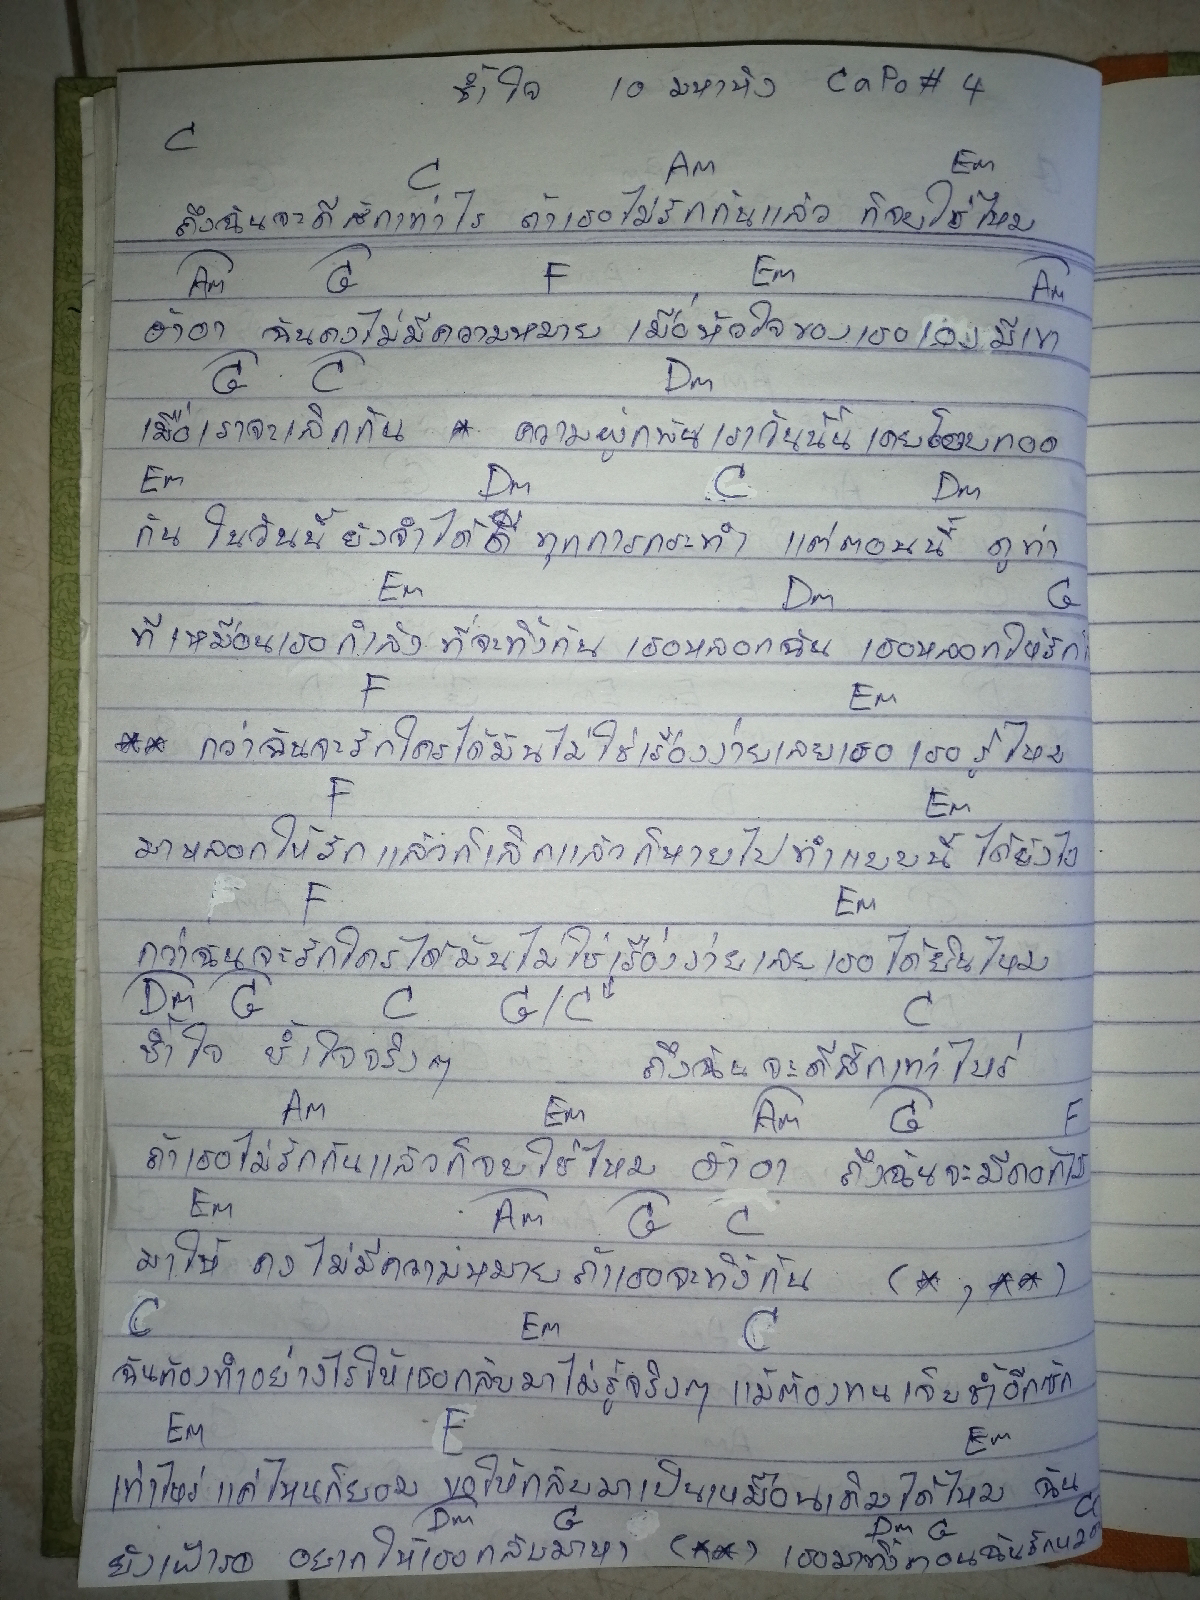 ช้ำใจ 10 มหาหิง CaPo# 4
C
C Am Em
ถึงฉันจะดีสักเท่าไร ถ้าเธอไม่รักกันแล้ว ก็จบใช่ไหม
Am G F Em Am
ฮ้าฮา ฉันคงไม่มีความหมาย เมื่อหัวใจของเธอเองมีเขา
G C Dm
เมื่อเราจะเลิกกัน * ความผูกพันเราวันนั้น เคยโอบกอด
Em Dm C Dm
กัน ในวันนี้ ยังจำได้ดี ทุกการกระทำ แต่ตอนนี้ ดูท่า
Em Dm G
ทีเหมือนเธอกำลัง ที่จะทิ้งกัน เธอหลอกฉัน เธอหลอกให้รัก
F Em
** กว่าฉันจะรักใครได้มันไม่ใช่เรื่องง่ายเลยเธอ เธอรู้ไหม
F Em
มาหลอกให้รักแล้วก็เลิกแล้วก็หายไปทำแบบนี้ ได้ยังไง
F Em
กว่าฉันจะรักใครได้มันไม่ใช่เรื่องง่ายเลยเธอได้ยินไหม
Dm G C G/C C
ช้ำใจ ช้ำใจจริงๆ ถึงฉันจะดีสักเท่าไหร่
Am Em Am G F
ถ้าเธอไม่รักกันแล้วก็จบใช่ไหม ฮ้าฮา ถึงฉันจะมีดอกไม้
Em Am G C
มาให้ คงไม่มีความหมายถ้าเธอจะทิ้งกัน (*, **)
C Em C
ฉันต้องทำอย่างไรให้เธอกลับมาไม่รู้จริงๆ แม้ต้องทนเจ็บช้ำอีกสัก
Em F Em
เท่าไหร่ แค่ไหนก็ยอม ขอให้กลับมาเป็นเหมือนเดิมได้ไหม ฉัน
Dm G Dm G C
ยังเฝ้ารอ อยากให้เธอกลับมาหา (**) เธอมาทิ้งตอนฉันรัก